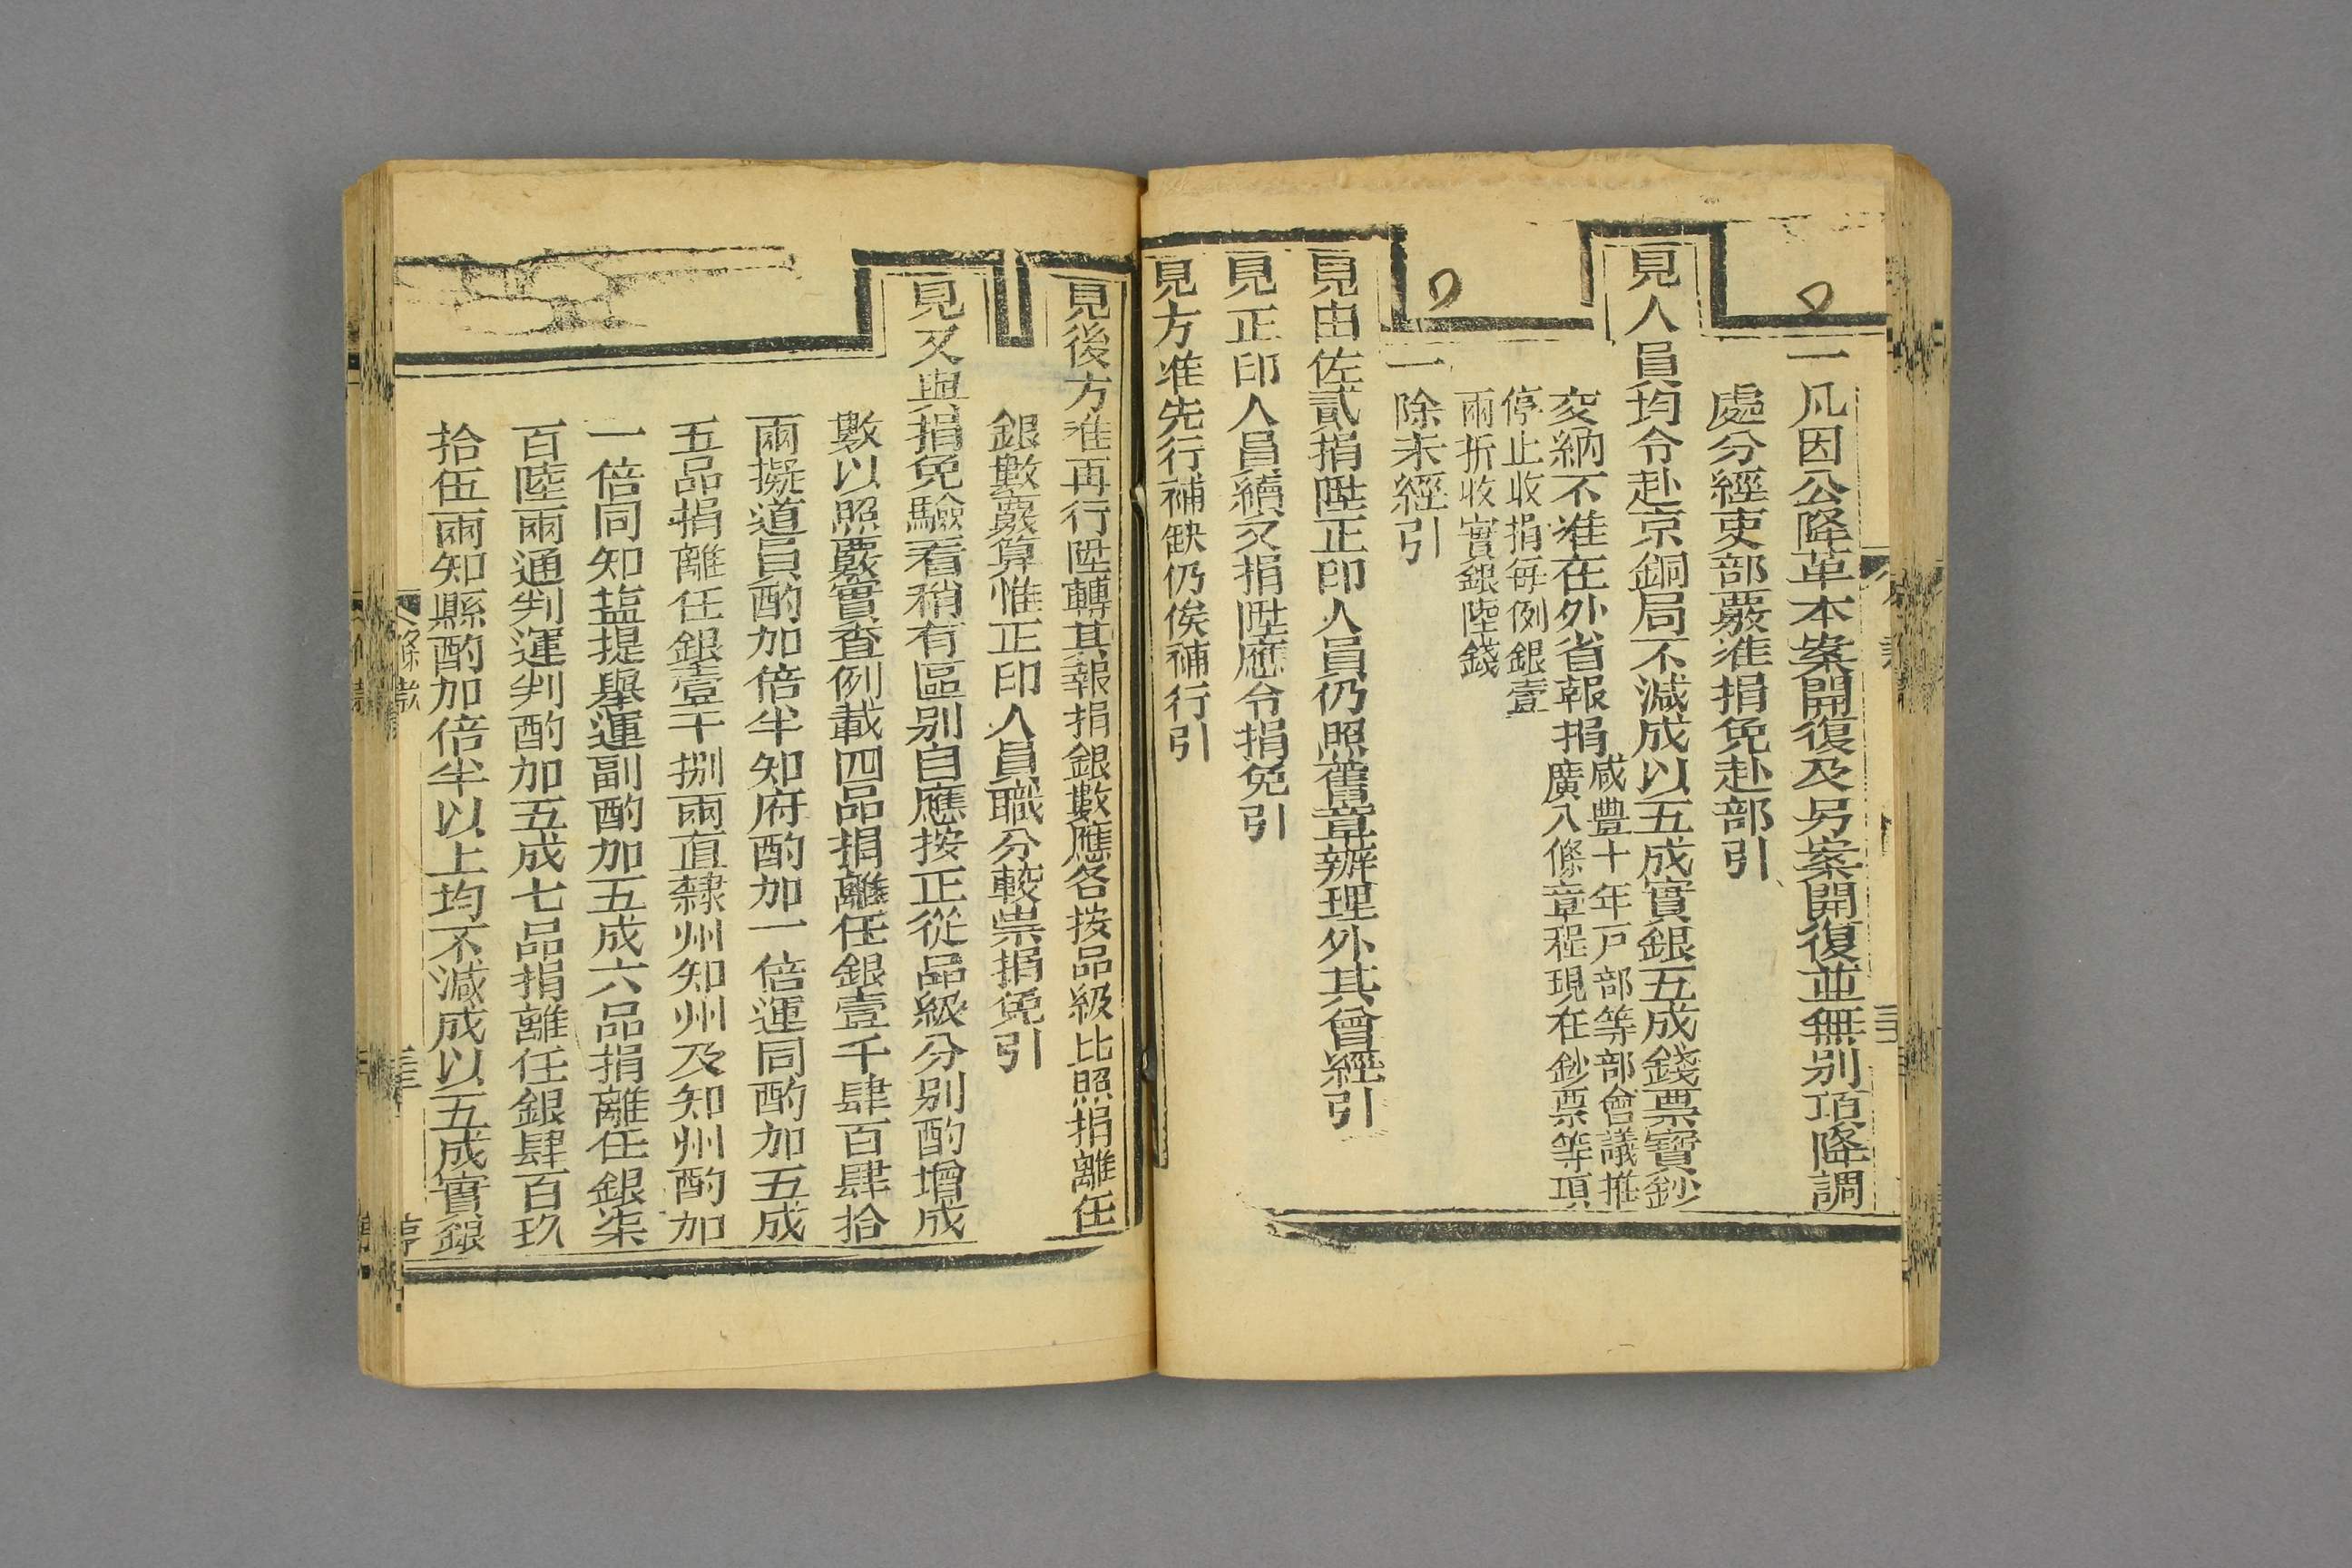 一凡因公降革本案開復及另案開復並無别項降調
處分經吏部覈准捐免赴部引
見人員均令赴京銅局不減成以五成實銀五成錢票寳鈔
交納不准在外省報捐
咸豐十年戸部等部會議推
廣八條章程現在鈔票等項
停止收捐每例銀壹
兩折收實銀陸錢
一除未經引
見由佐貳捐陞正印人員仍照舊章辦理外其曾經引
見正印人員續又捐陞應令捐免引
見方准先行補缺仍俟補行引
見後方准再行陞轉其報捐銀數應各按品級比照捐離任
銀數覈算惟正印人員職分較崇捐免引
見又與捐免驗看稍有區别自應按正從品級分别酌增成
數以照覈實查例載四品捐離任銀壹千肆百肆拾
兩擬道員酌加倍半知府酌加一倍運同酌加五成
五品捐離任銀壹千捌兩直隸州知州及知州酌加
一倍同知塩提舉運副酌加五成六品捐離任銀柒
百陸兩通判運判酌加五成七品捐離任銀肆百玖
拾伍兩知縣酌加倍半以上均不減成以五成實銀
條款